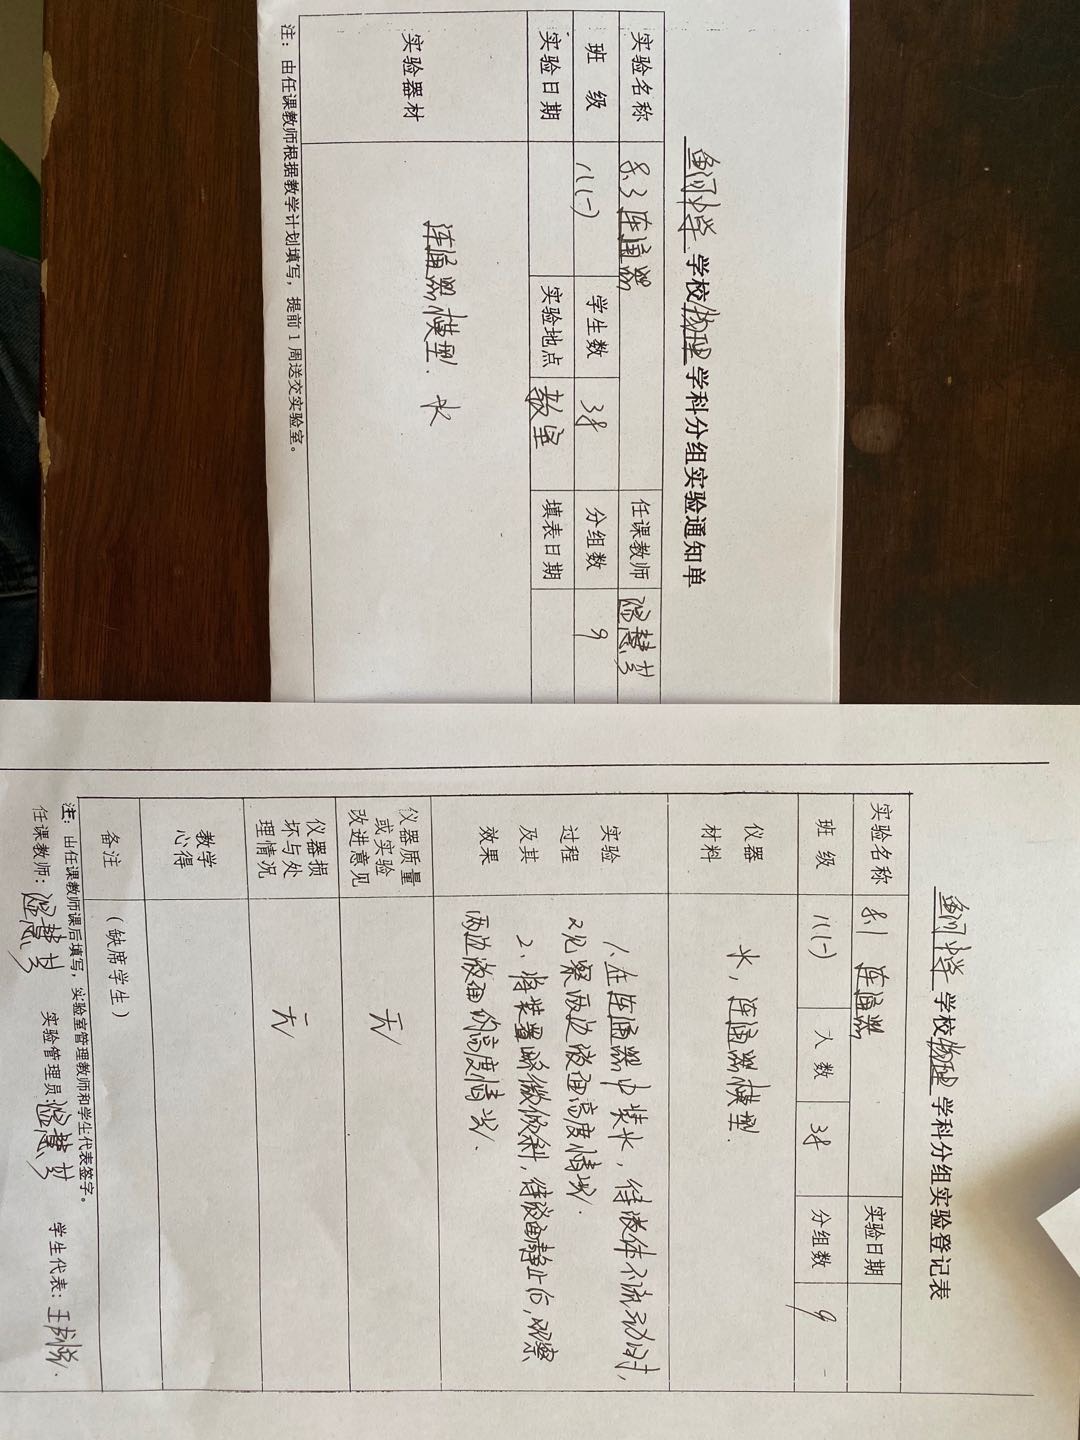 学校物理学科分组实验通知单
实验名称 8.3 连通器 任课教师
班 级 八(一) 学生数 38 分组数 9
实验日期 实验地点 教室 填表日期
实验器材 连通器模型. 水
注：由任课教师根据教学计划填写，提前1周送交实验室。
学校物理学科分组实验登记表
实验名称 连通器 实验日期
班 级 八(一) 人 数 38 分组数 9
仪器材料 水，连通器模型.
实验过程及其效果
1、在连通器中装水，待液体不流动时，
观察两边液面高度情况.
2、将装置略微倾斜，待液面静止后，观察
两边液面的高度情况.
仪器质量或实验改进意见 无
仪器损坏与处理情况 无
教学心得
备注 (缺席学生)
注：由任课教师课后填写，实验室管理教师和学生代表签字。
任课教师： 实验管理员： 学生代表：